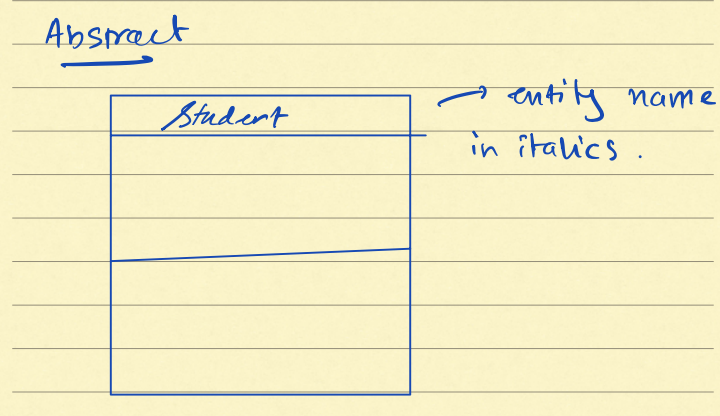 Abstract
Student → entity name
in italics.